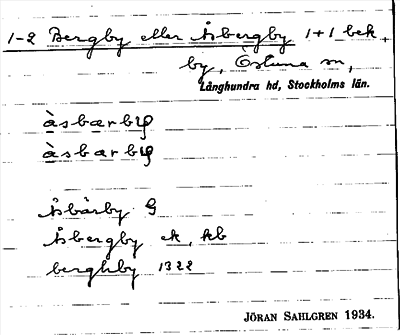 1-2 Bergby eller Åsbergby 1+1 bek.
by, Östuna sn,
Långhundra hd, Stockholms län.
àsbærby
àsbarby
Åsbärby G
Åsbergby ek, kb
berghby 1322
JÖRAN SAHLGREN 1934.